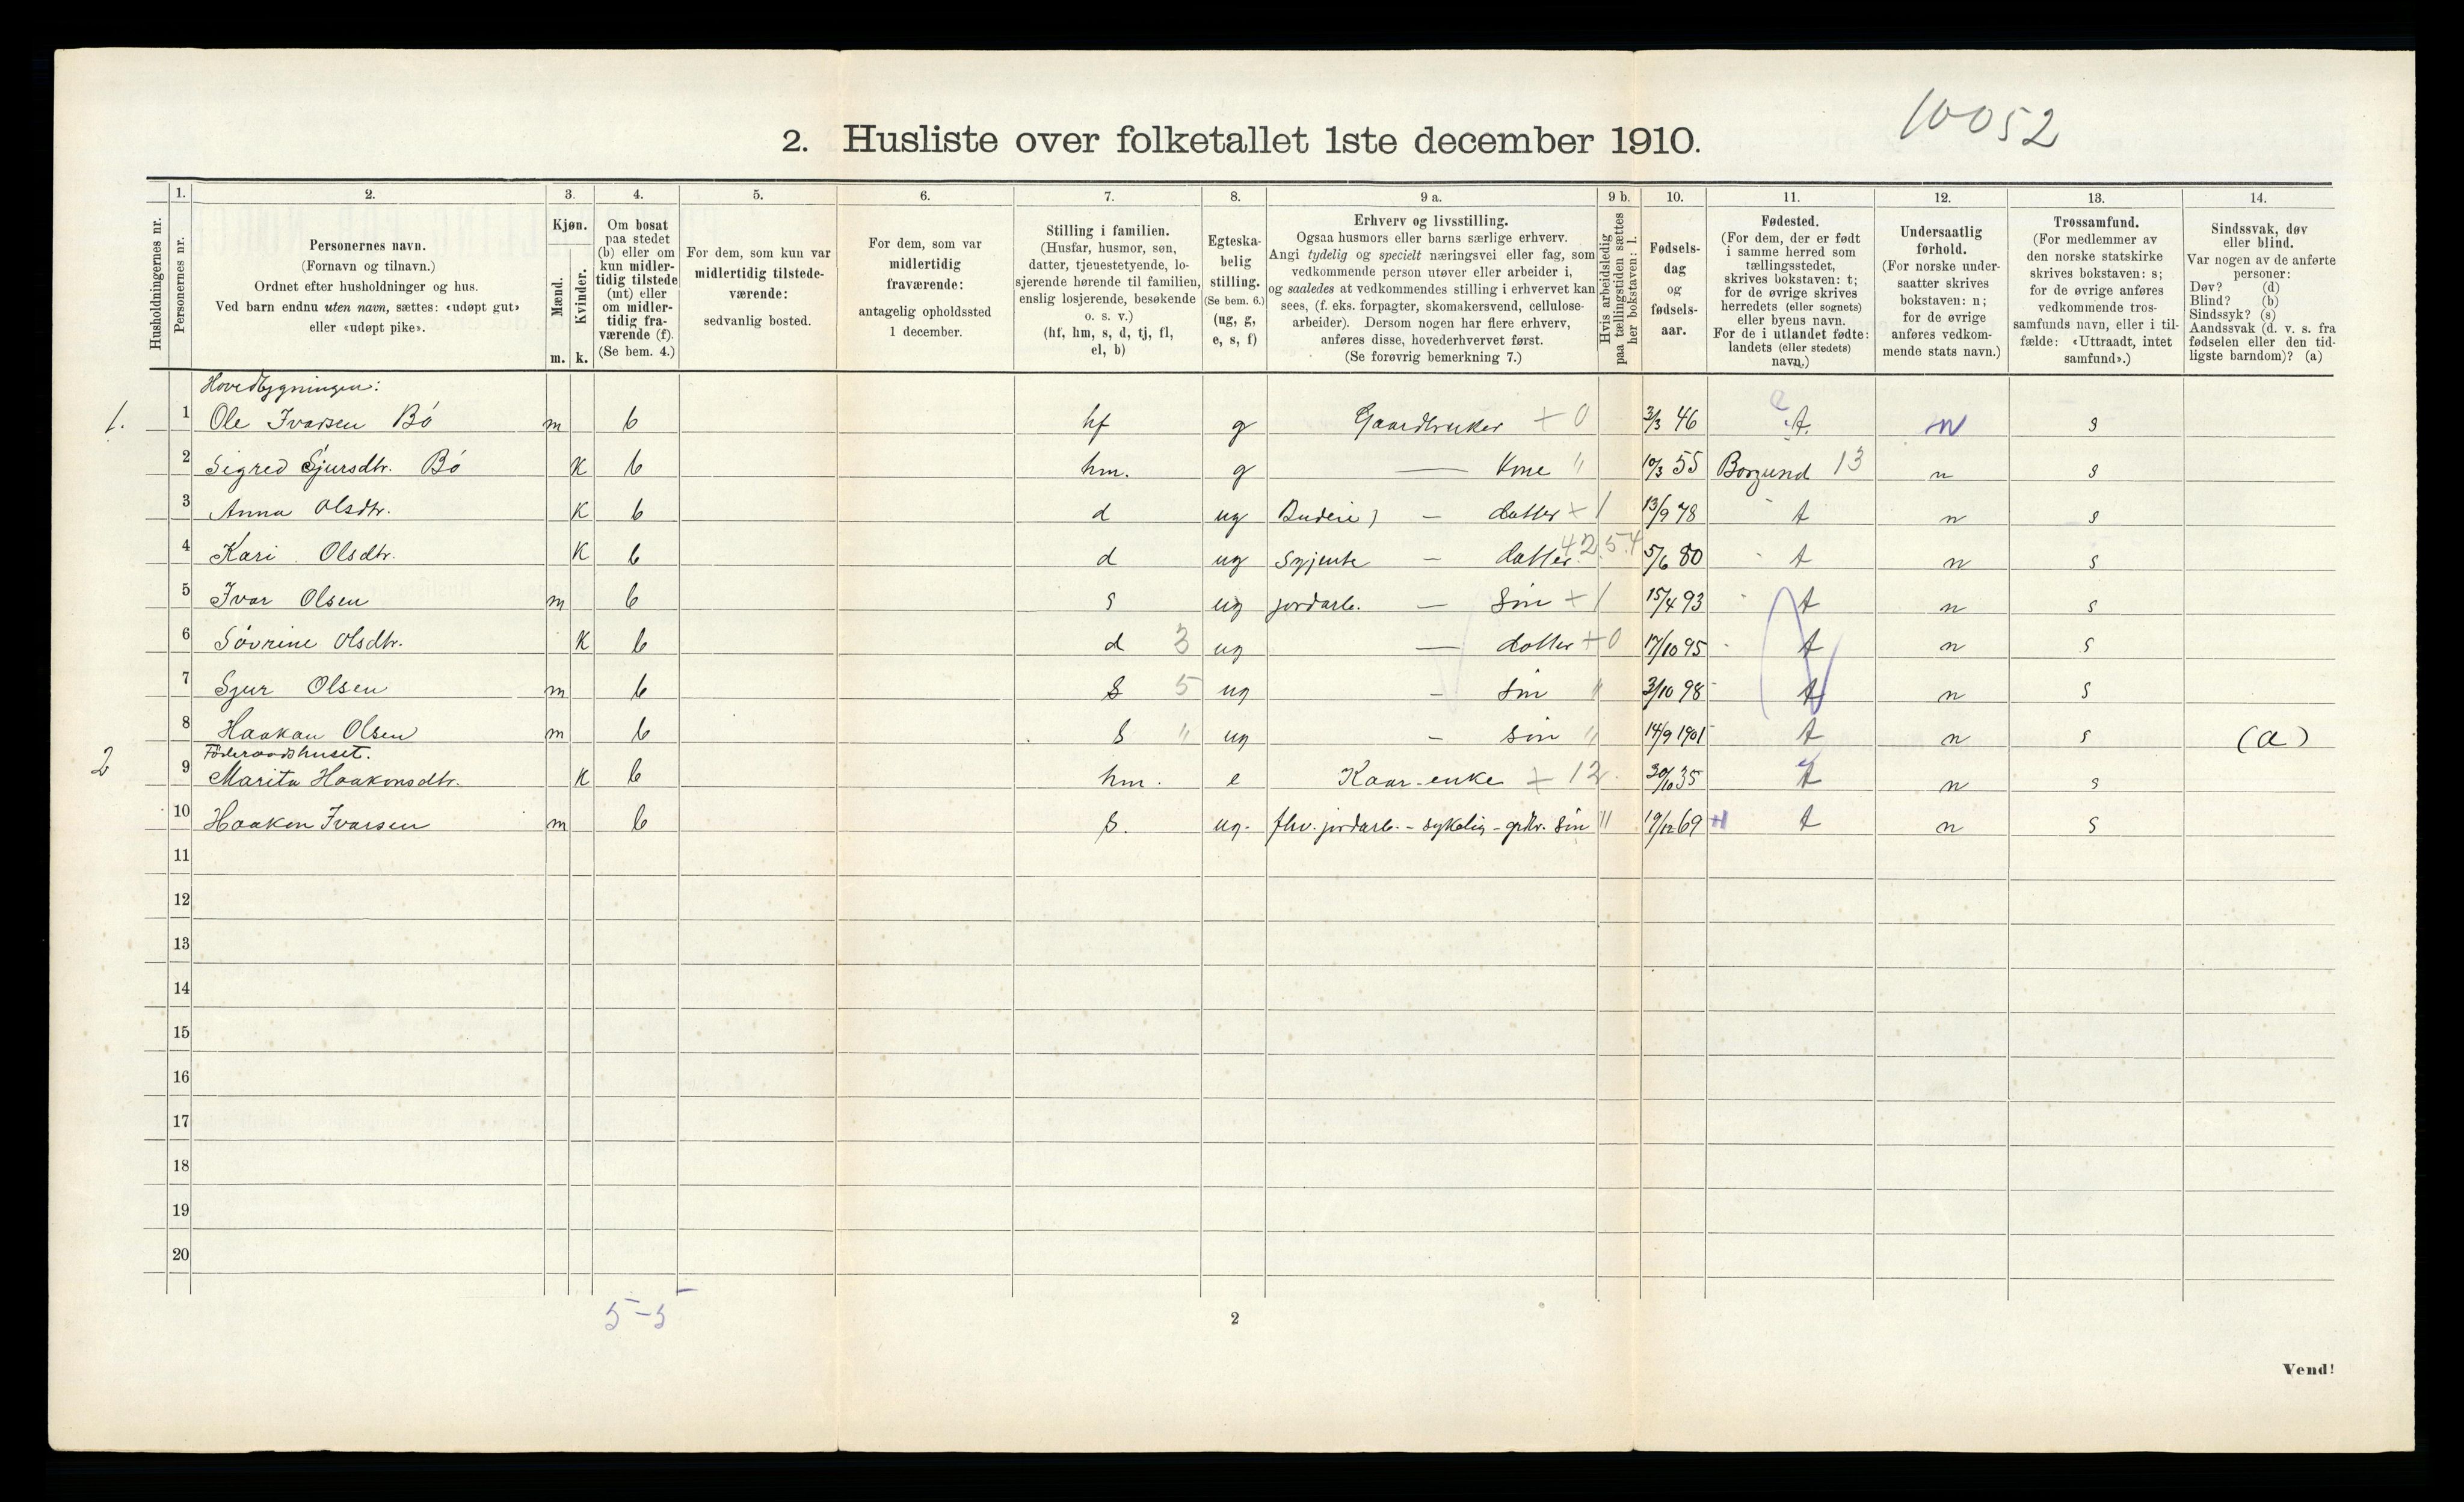 10052
2. Husliste over folketallet 1ste december 1910.
Husholdningernes nr.
1. Personernes nr.
2. Personernes navn. (Fornavn og tilnavn.) Ordnet efter husholdninger og hus. Ved barn endnu uten navn, sættes: «udøpt gut» eller «udøpt pike».
3. Kjøn. Mænd. m. Kvinder. k.
4. Om bosat paa stedet (b) eller om kun midlertidig tilstede (mt) eller om midlertidig fraværende (f). (Se bem. 4.)
5. For dem, som kun var midlertidig tilstedeværende: sedvanlig bosted.
6. For dem, som var midlertidig fraværende: antagelig opholdssted 1 december.
7. Stilling i familien. (Husfar, husmor, søn, datter, tjenestetyende, losjerende hørende til familien, enslig losjerende, besøkende o. s. v.) (hf, hm, s, d, tj, fl, el, b)
8. Egteskabelig stilling. (Se bem. 6.) (ug, g, e, s, f)
9 a. Erhverv og livsstilling. Ogsaa husmors eller barns særlige erhverv. Angi tydelig og specielt næringsvei eller fag, som vedkommende person utøver eller arbeider i, og saaledes at vedkommendes stilling i erhvervet kan sees, (f. eks. forpagter, skomakersvend, cellulosearbeider). Dersom nogen har flere erhverv, anføres disse, hovederhvervet først. (Se forøvrig bemerkning 7.)
9 b. Hvis arbeidsledig paa tællingstiden sættes her bokstaven: l.
10. Fødselsdag og fødselsaar.
11. Fødested. (For dem, der er født i samme herred som tællingsstedet, skrives bokstaven: t; for de øvrige skrives herredets (eller sognets) eller byens navn. For de i utlandet fødte: landets (eller stedets) navn.)
12. Undersaatlig forhold. (For norske undersaatter skrives bokstaven: n; for de øvrige anføres vedkommende stats navn.)
13. Trossamfund. (For medlemmer av den norske statskirke skrives bokstaven: s; for de øvrige anføres vedkommende trossamfunds navn, eller i tilfælde: «Uttraadt, intet samfund».)
14. Sindssvak, døv eller blind. Var nogen av de anførte personer: Døv? (d) Blind? (b) Sindssyk? (s) Aandssvak (d. v. s. fra fødselen eller den tidligste barndom)? (a)
Hovedbygningen:
1. 1 Ole Ivarsen Bö m b hf g Gaardbruker + 0 3/3 46 t. n s
2 Sigred Sjursdtr. Bö K b hm. g — Kone " 10/3 55 Borgund 13 n s
3 Anna Olsdtr. K b d ug Budeie) — datter + 1 13/9 78 t n s
4 Kari Olsdtr. K b d ug Syjente — datter 42.54 5/6 80 t n s
5 Ivar Olsen m b s ug jordarb. — Sön + 1 15/4 93 t n s
6 Sövrine Olsdtr. K b d 3 ug — datter + 0 17/10 95 t n s
7 Sjur Olsen m b S 5 ug - Sön " 3/10 98 t n s
8 Haakon Olsen m b S " ug - sön " 14/9 1901 t n s (a)
Föderaadshuset.
2 9 Marita Haakonsdtr. K b hm. e Kaar-enke + 12. 30/10 35 t n s
10 Haakon Ivarsen m b S. ug. fhv. jordarb. - sykelig - grdbr. Sön " 19/12 69 t n s
11
12
13
14
15
16
17
18
19
20
5-5
2
Vend!